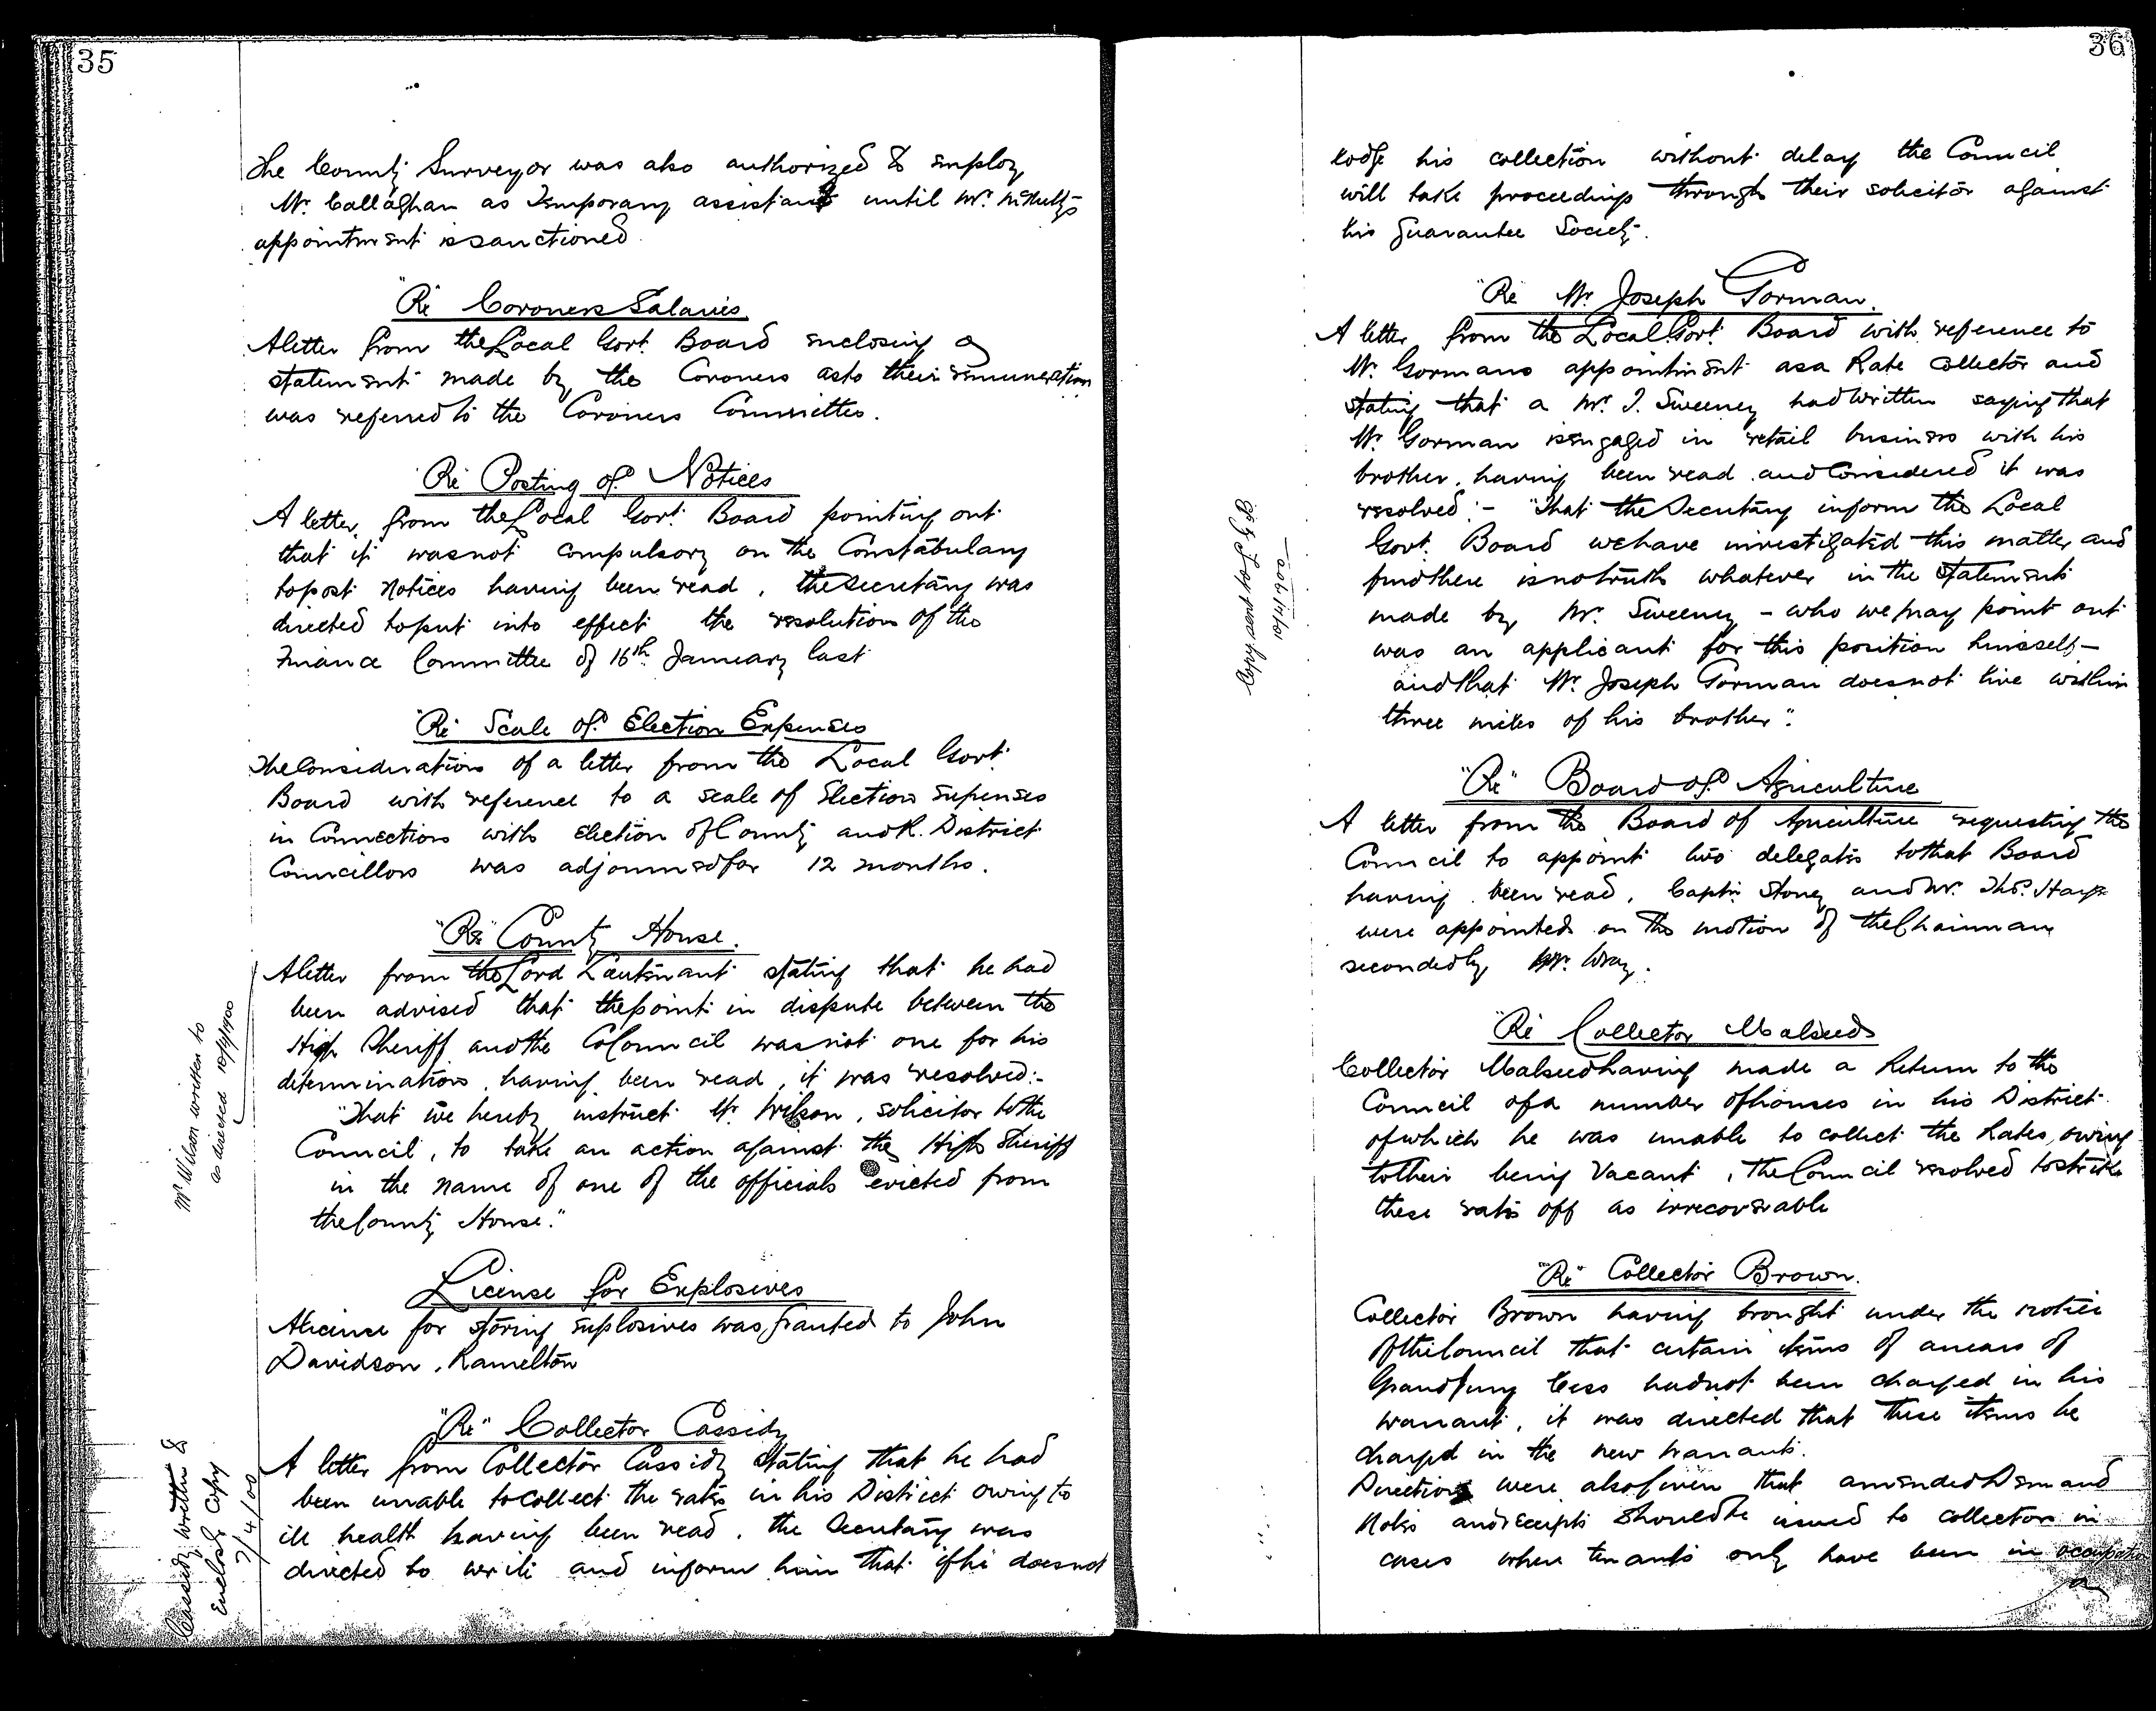 35
The County Surveyor was also authorized to employ
Mr. Callaghan as Temporary assistant until Mr. McNulty's
appointment is sanctioned
"Re Coroners Salaries
A letter from the Local Govt. Board enclosing a
statement made by the Coroners as to their remuneration
was referred to the Coroners Committee.
"Re Posting of Notices
A letter from the Local Govt. Board pointing out
that it was not compulsory on the Constabulary
to post notices having been read, the Secretary was
directed to put into effect the resolution of the
Finance Committee of 16th January last
"Re Scale of Election Expenses
The Consideration of a letter from the Local Govt.
Board with reference to a scale of Election expenses
in Connection with election of County and R. District
Councillors was adjourned for 12 months.
"Re" County House.
A letter from the Lord Lieutenant stating that he had
been advised that the point in dispute between the
High Sheriff and the Co Council was not one for his
determination, having been read, it was resolved:-
"That we hereby instruct Mr. Wilson, solicitor to the
Council, to take an action against the High Sheriff
in the name of one of the officials evicted from
the County House."
Mr Wilson written to
as directed 10/4/1900
License for Explosives
A license for storing explosives was granted to John
Davidson, Ramelton
"Re" Collector Cassidy
A letter from Collector Cassidy stating that he had
been unable to collect the rates in his District owing to
ill health having been read, the Secretary was
directed to write and inform him that if he does not
Cassidy written to
Enclosg Copy
7/4/00
36
lodge his collection without delay the Council
will take proceedings through their solicitor against
his Guarantee Society.
"Re Mr. Joseph Gorman.
A letter from the Local Govt. Board with reference to
Mr. Gormans appointment as a Rate Collector and
stating that a Mr. J. Sweeney had written saying that
Mr. Gorman is engaged in retail business with his
brother, having been read and Considered it was
resolved:- "That the Secretary inform the Local
Govt. Board we have investigated this matter and
find there is no truth whatever in the statement
made by Mr. Sweeney - who we may point out
was an applicant for this position himself -
and that Mr. Joseph Gorman does not live within
three miles of his brother".
Copy per post
10/4/1900
"Re" Board of Agriculture
A letter from the Board of Agriculture requesting the
Council to appoint two delegates to that Board
having been read, Captn. Stoney and Mr. Thos. Hayes
were appointed on the motion of the Chairman
seconded by Mr. Wray.
"Re Collector Malseed
Collector Malseed having made a Return to the
Council of a number of houses in his District
of which he was unable to collect the Rates, owing
to their being Vacant, the Council resolved to strike
these rates off as irrecoverable
"Re" Collector Brown.
Collector Brown having brought under the notice
of the Council that certain items of arrears of
Grand Jury Cess had not been charged in his
warrant, it was directed that these items be
charged in the new warrant.
Directions were also given that amended Demand
Notes and receipts should be issued to collectors in
cases where tenants only have been in occupation